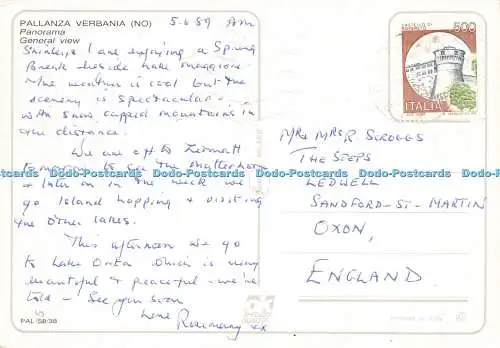 PALLANZA VERBANIA (NO)
Panorama
General view
5.6.89 AM
Shirley & I are enjoying a Spring
Break beside Lake Maggiore
- The weather is cool but the
scenery is spectacular -
with snow capped mountains in
the distance.
We are off to Zermatt
tomorrow to see the Matterhorn
& later on in the week we
go Island hopping & visiting
the other lakes.
This afternoon we go
to Lake Orta which is very
beautiful & peaceful - we're
told - See you soon
Love Rosemary xx
PAL/58/38
CASTELLO DI
500
ITALIA
Mr & Mrs R. Scroggs
THE STEPS
LEDWELL
SANDFORD-ST-MARTIN
OXON,
ENGLAND
Dodo-Postcards Dodo-Postcards Dodo-Postcards Dodo-Postcards Dodo-Postcards Dodo-Postcards